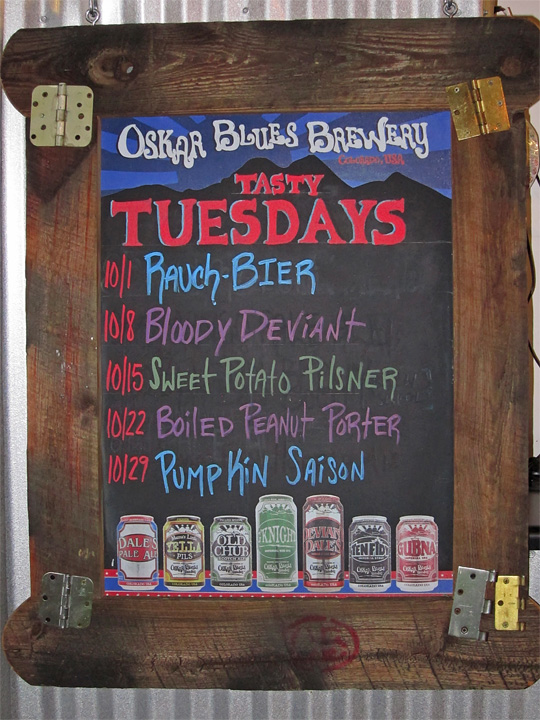 OSKAR BLUES BREWERY
COLORADO, USA
TASTY
TUESDAYS
10/1 RAUCH-BIER
10/8 BLOODY DEVIANT
10/15 SWEET POTATO PILSNER
10/22 BOILED PEANUT PORTER
10/29 PUMPKIN SAISON
DALE'S PALE ALE
PILS
OLD CHUB
G'KNIGHT
DEVIANT DALE'S
TENFIDY
GUBNA